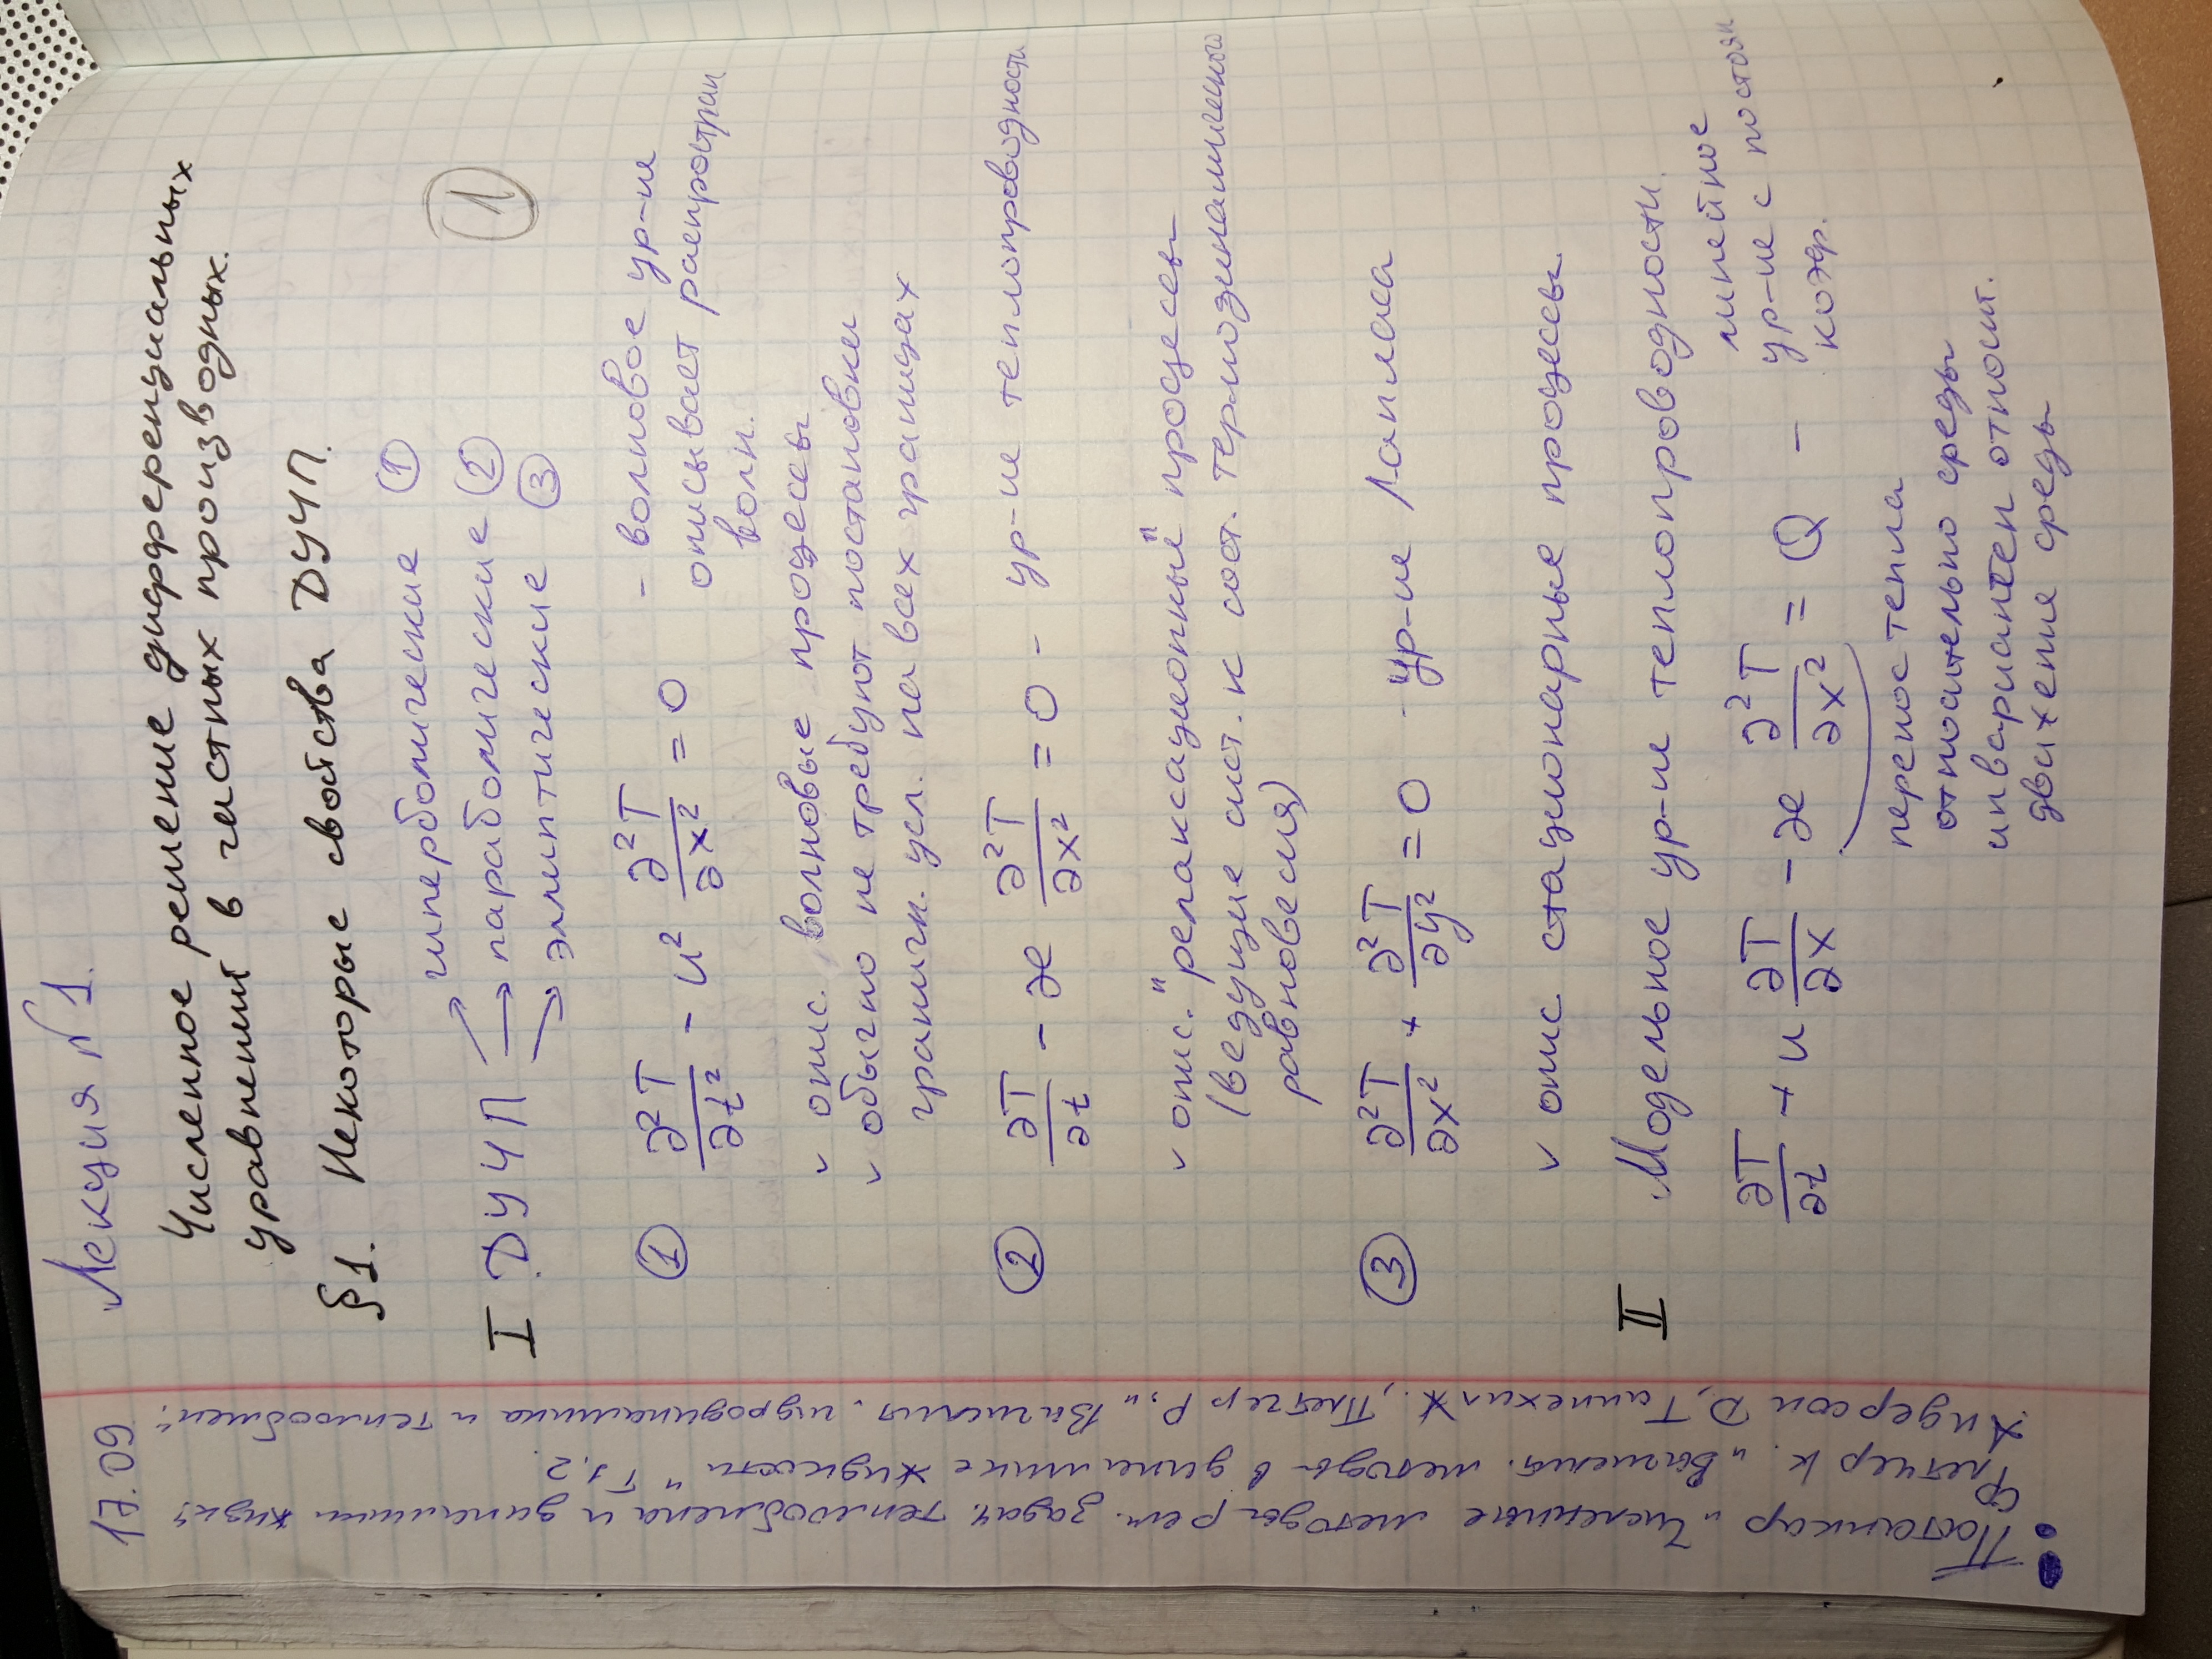 17.09
Лекция №1.
Численное решение дифференциальных
уравнений в частных производных.
§1. Некоторые свойства ДУЧП.
гиперболические ①
I ДУЧП → параболические ②
эллиптические ③
1
① ∂²T/∂t² - u² ∂²T/∂x² = 0 - волновое ур-ие
описывает распростран
волн.
✓ опис. волновые процессы
✓ обычно не требуют постановки
граничн. усл. на всех границах
② ∂T/∂t - æ ∂²T/∂x² = 0 - ур-ие теплопроводности
✓ опис. "релаксационные" процессы
(ведущие сист. к сост. термодинамического
равновесия)
③ ∂²T/∂x² + ∂²T/∂y² = 0 - ур-ие Лапласа
✓ опис. стационарные процессы
II Модельное ур-ие теплопроводности.
∂T/∂t + u ∂T/∂x - æ ∂²T/∂x² = Q - линейное
ур-ие с постоян
коэф.
перенос тепла
относительно среды
инвариантен относит.
движение среды
• Патанкар „Численные методы реш. задач теплообмена и динамики жидк."
Флетчер К. „Вычислит. методы в динамике жидкости" Т 1,2.
Андерсон Д, Таннехилл Ж., Плетчер Р, „Вычислит. гидродинамика и теплообмен".